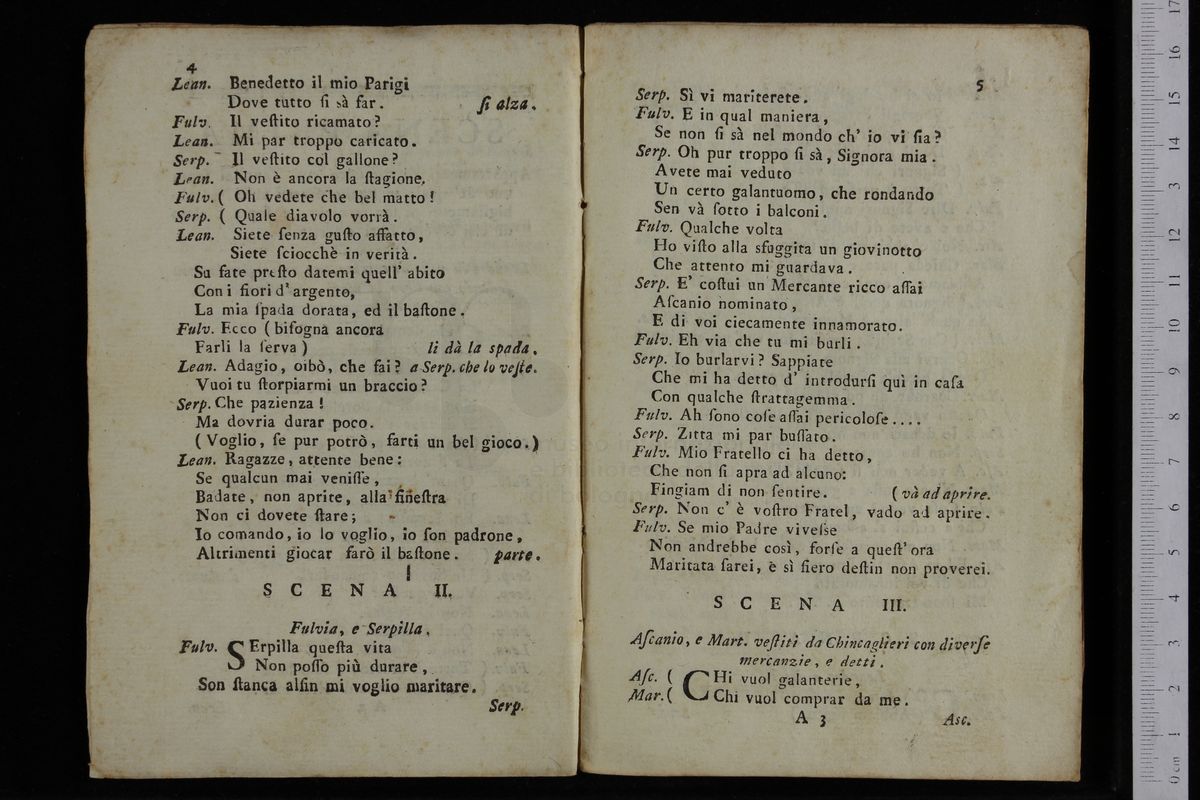 4
Lean. Benedetto il mio Parigi
Dove tutto ſi sà far. ſi alza.
Fulv. Il veſtito ricamato?
Lean. Mi par troppo caricato.
Serp. Il veſtito col gallone?
Lean. Non è ancora la ſtagione.
Fulv. ( Oh vedete che bel matto!
Serp. ( Quale diavolo vorrà.
Lean. Siete ſenza guſto affatto,
Siete ſciocchè in verità.
Su fate preſto datemi quell' abito
Con i fiori d'argento,
La mia ſpada dorata, ed il baſtone.
Fulv. Ecco ( biſogna ancora
Farli la ſerva ) li dà la spada.
Lean. Adagio, oibò, che fai? a Serp. che lo veſte.
Vuoi tu ſtorpiarmi un braccio?
Serp. Che pazienza!
Ma dovria durar poco.
( Voglio, ſe pur potrò, farti un bel gioco. )
Lean. Ragazze, attente bene:
Se qualcun mai veniſſe,
Badate, non aprite, alla fineſtra
Non ci dovete ſtare;
Io comando, io lo voglio, io ſon padrone,
Altrimenti giocar farò il baſtone. parte.
SCENA II.
Fulvia, e Serpilla.
Fulv. SErpilla queſta vita
Non poſſo più durare,
Son ſtanca alfin mi voglio maritare.
Serp.
5
Serp. Sì vi mariterete.
Fulv. E in qual maniera,
Se non ſi sà nel mondo ch' io vi ſia?
Serp. Oh pur troppo ſi sà, Signora mia.
Avete mai veduto
Un certo galantuomo, che rondando
Sen và ſotto i balconi.
Fulv. Qualche volta
Ho viſto alla sfuggita un giovinotto
Che attento mi guardava.
Serp. E' coſtui un Mercante ricco aſſai
Aſcanio nominato,
E di voi ciecamente innamorato.
Fulv. Eh via che tu mi burli.
Serp. Io burlarvi? Sappiate
Che mi ha detto d' introdurſi quì in caſa
Con qualche ſtrattagemma.
Fulv. Ah ſono coſe aſſai pericoloſe....
Serp. Zitta mi par buſſato.
Fulv. Mio Fratello ci ha detto,
Che non ſi apra ad alcuno:
Fingiam di non ſentire. ( và ad aprire.
Serp. Non c' è voſtro Fratel, vado ad aprire.
Fulv. Se mio Padre viveſse
Non andrebbe così, forſe a queſt' ora
Maritata ſarei, è sì fiero deſtin non proverei.
SCENA III.
Aſcanio, e Mart. veſtiti da Chincaglieri con diverſe
mercanzie, e detti.
Aſc. ( CHi vuol galanterie,
Mar. ( Chi vuol comprar da me.
A 3 Asc.
0 cm 1 2 3 4 5 6 7 8 9 10 11 12 13 14 15 16 17